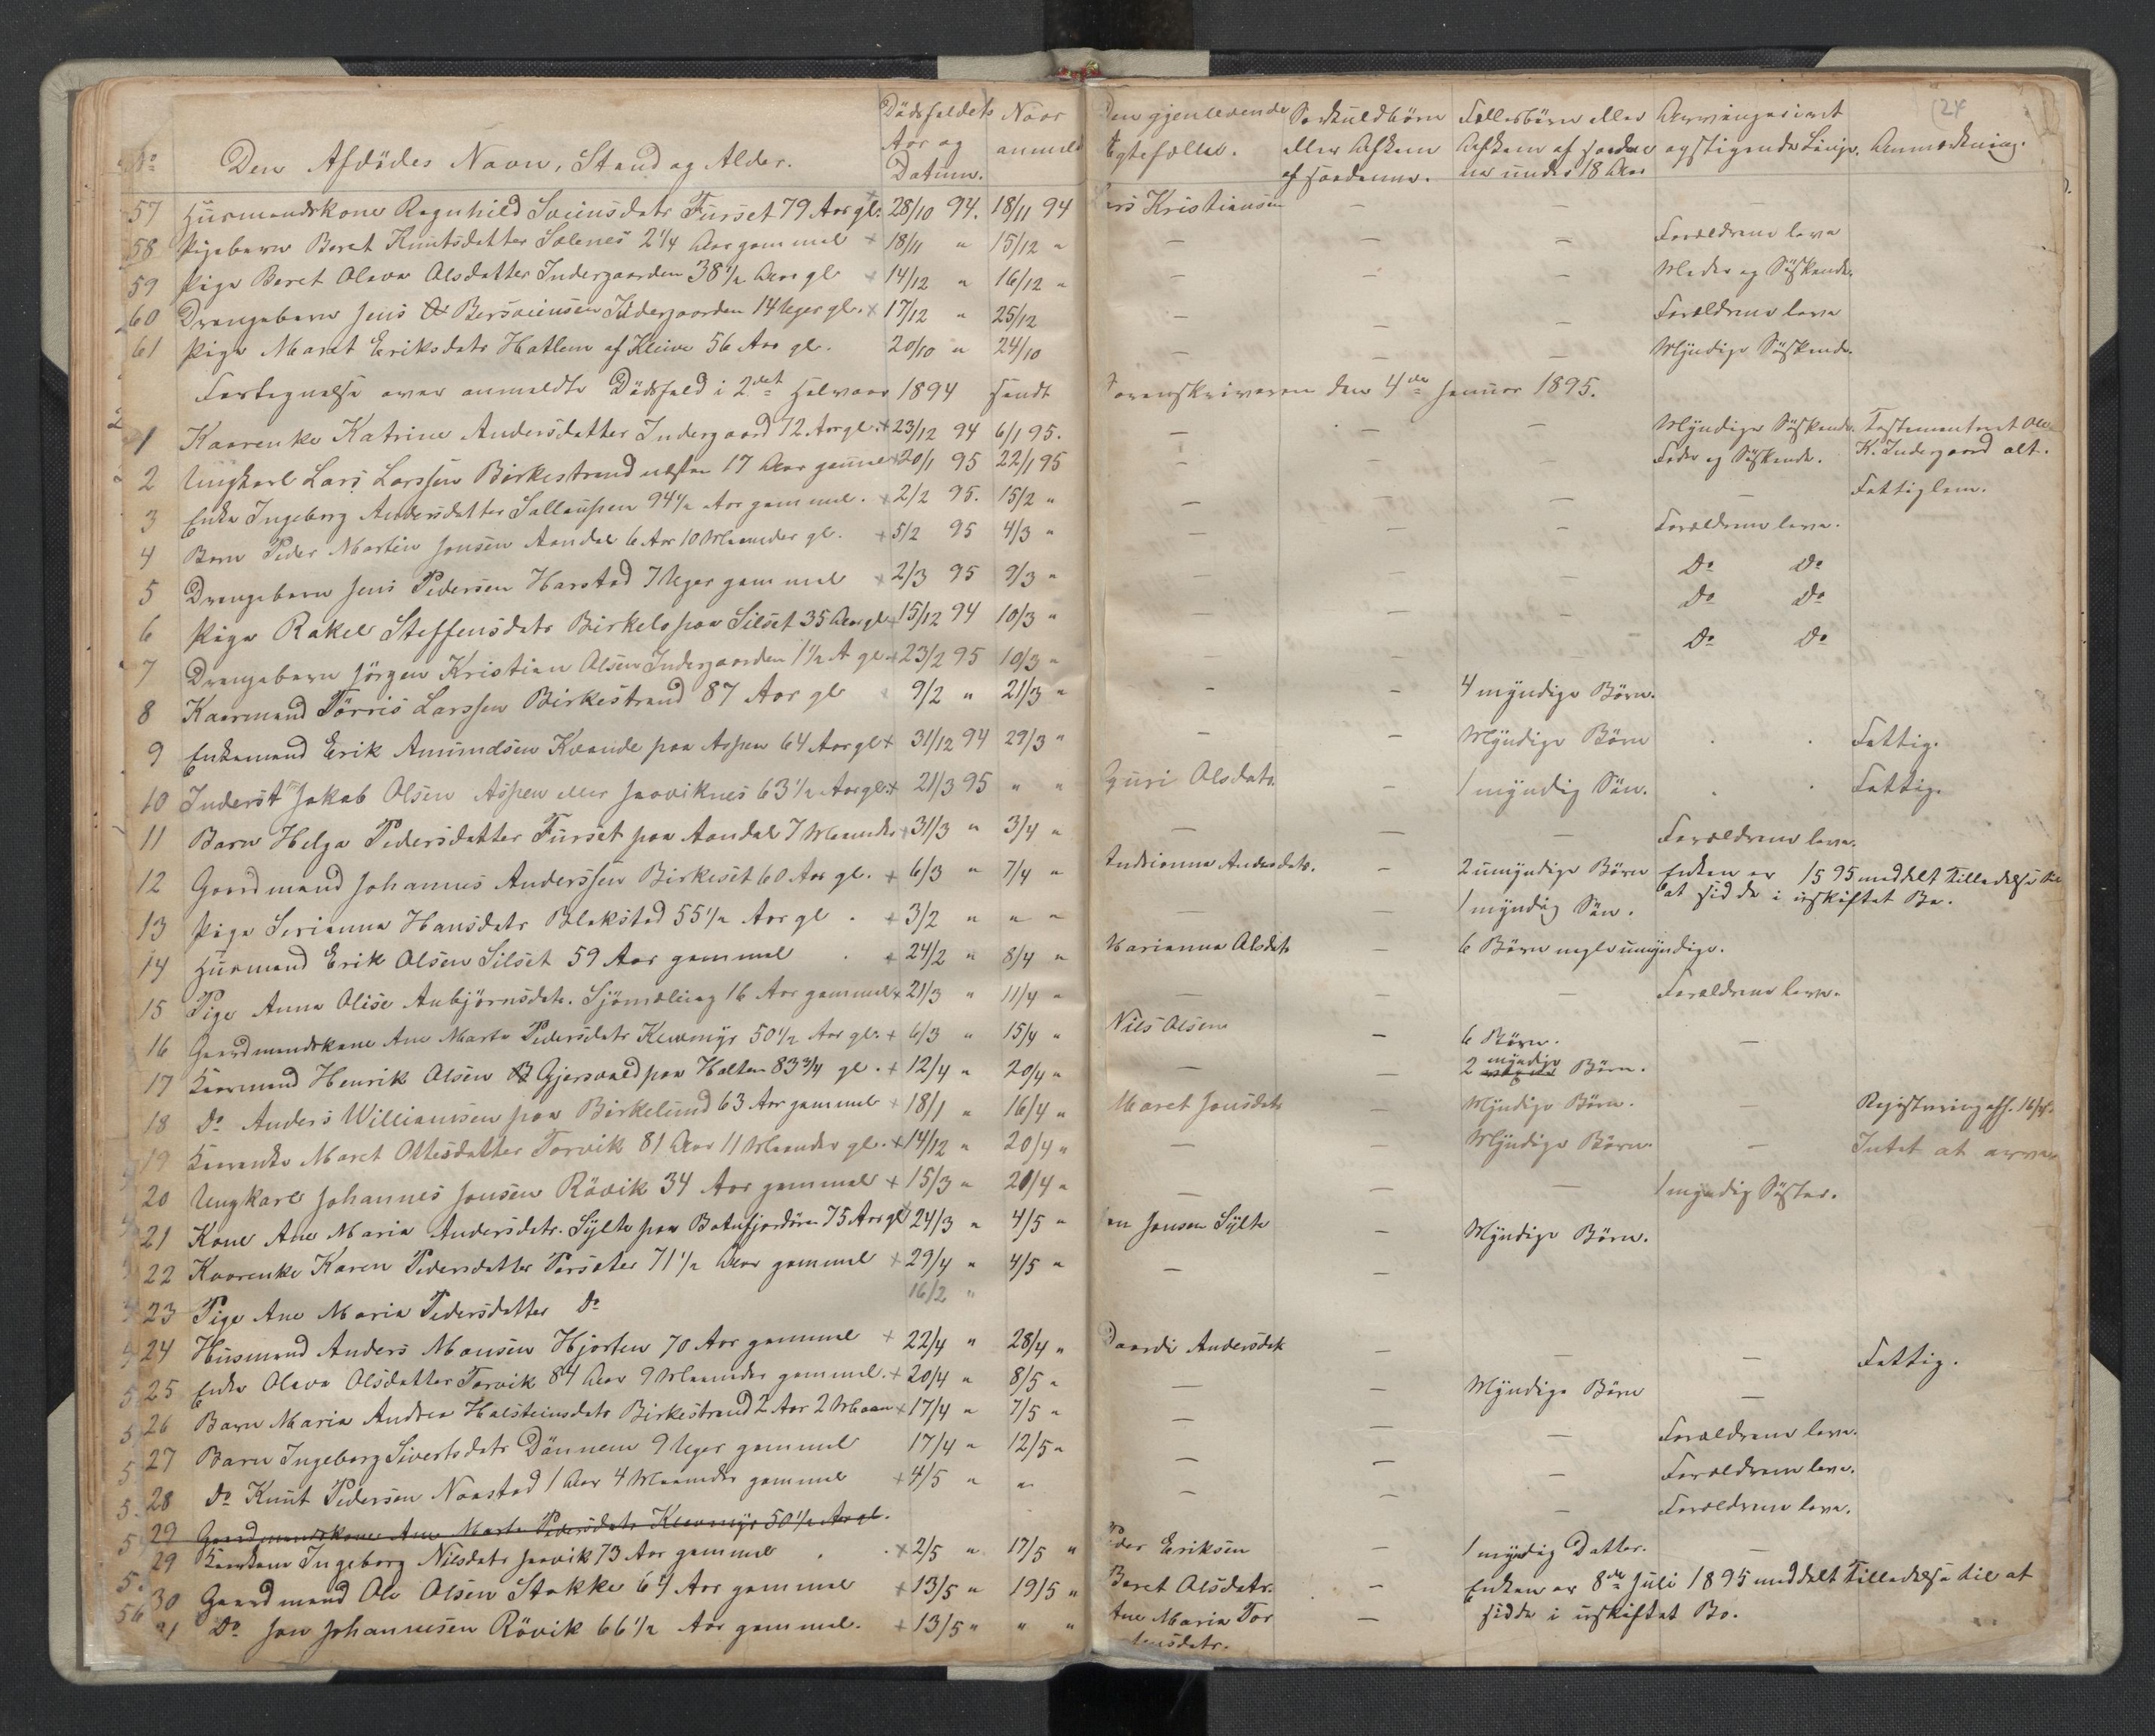 24
No Den Afdödes Navn, Stand og Alder. Dödsfaldets Aar og Datum. Naar anmeldt Den gjenlevende Ægtefælle. Særkuldbörn eller Afkom af saadanne. Fællesbörn eller Afkom af saadanne under 18 Aar Arvinger i ret opstigende Linje. Anmærkning.
57 Husmandskone Ragnhild Sveinsdatr Furset 79 Aar gl. 28/10 94. 18/11 94 Lars Kristiansen — — —
58 Pigebarn Beret Knutsdatter Solenes 2 1/4 Aar gammel + 18/11 " 15/12 " — — — Forældrene leve
59 Pige Beret Olava Olsdatter Indergaarden 38 1/2 Aar gl + 14/12 " 16/12 " — — — Moder og Söskende.
60 Drengebarn Jens Bersveinsen Indergaarden 14 Uger gl. + 17/12 " 25/12 — — — Forældrene leve
61 Pige Maret Eriksdatr Hatlem af Kleive 56 Aar gl. 20/10 " 24/10 — — — Myndige Söskende.
Fortegnelse over anmeldte Dödsfald i 2det Halvaar 1894 sendt Sorenskriveren den 4de Januar 1895.
1 Kaarenke Katrine Andersdatter Indergaard 72 Aar gl. + 23/12 94 6/1 95. — — — Myndige Söskende. Testamenteret Ole
K. Indergaard alt.
2 Ungkarl Lars Larssen Birkestrand næsten 17 Aar gammel + 20/1 95 22/1 95 — — — Fader og Söskende.
3 Enke Ingeborg Andersdatter Sallaupen 94 1/2 Aar gammel. + 2/2 95. 15/2 " — — — — Fattiglem.
4 Barn Peder Martin Jonsen Aandal 6 Aar 10 Maaneder gl. + 5/2 95 4/3 " — — — Forældrene leve.
5 Drengebarn Jens Pedersen Harstad 7 Uger gammel + 2/3 95 9/3 " — — — Do Do
6 Pige Rakel Steffensdatr Birkelo paa Silset 35 Aar gl + 15/12 94 10/3 " — — — Do Do
7 Drengebarn Jörgen Kristian Olsen Indergaarden 1 1/2 A gl. + 23/2 95 10/3 " — — — Do Do
8 Kaarmand Törris Larssen Birkestrand 87 Aar gl + 9/2 " 21/3 " — — 4 myndige Börn.
9 Enkemand Erik Amundsen Kvande paa Aspen 64 Aar gl + 31/12 94 29/3 " — — Myndige Börn Fattig.
10 Inderst Jakob Olsen Aspen eller Jaaviknes 63 1/2 Aar gl. + 21/3 95 " " Guri Olsdatr. — 1 myndig Sön. Fattig.
11 Barn Helga Pedersdatter Furset paa Aandal 7 Maaneder + 31/3 " 3/4 " — — — Forældrene leve.
12 Gaardmand Johannes Anderssen Birkeset 60 Aar gl. + 6/3 " 7/4 " Andrianna Andersdatr. — 2 umyndige Börn Enken er 1595 meddelt Tilladelse til
at sidde i uskiftet Bo.
13 Pige Serianna Hansdatr Blakstad 55 1/2 Aar gl. + 3/2 " " " — — 1 myndig Sön.
14 Husmand Erik Olsen Silset 59 Aar gammel + 24/2 " 8/4 " Marianna Olsdatr — 6 Börn nogle umyndige.
15 Pige Anna Olise Anbjörnsdatr. Sjömæling 16 Aar gammel + 21/3 " 11/4 " — — — Forældrene leve.
16 Gaardmandskone Ane Marta Pedersdatr Klevmyr 50 1/2 Aar gl. + 6/3 " 15/4 " Nils Olsen — 6 Börn. —
17 Kaarmand Henrik Olsen Gjersvold paa Holten 83 3/4 gl. + 12/4 " 20/4 " — — 2 myndige Börn.
18 Do Anders Williamsen paa Birkelund 63 Aar gammel + 18/1 " 16/4 " Maret Jonsdatr — Myndige Börn. —
19 Kaarenke Maret Ottesdatter Torvik 81 Aar 11 Maaneder gl. + 14/12 " 20/4 " — — Myndige Börn. — Intet at arve
20 Ungkarl Johannes Jonsen Rövik 34 Aar gammel + 15/3 " 20/4 " — — — 1 myndig Söster.
21 Kone Ane Maria Andersdatr. Sylte paa Batnfjordören 75 Aar gl + 24/3 " 4/5 " Jon Jonsen Sylte — Myndige Börn.
22 Kaarenke Karen Pedersdatter Torsæter 71 1/2 Aar gammel + 29/4 " 4/5 " — —
23 Pige Ane Maria Pedersdatter Do 16/2 "
24 Husmand Anders Monsen Hjorten 70 Aar gammel + 22/4 " 28/4 " Baardi Andersdatr — — — Fattig.
25 Enke Olava Olsdatter Torvik 84 Aar 9 Maaneder gammel. + 20/4 " 8/5 " — — Myndige Börn —
26 Barn Maria Andrea Halsteinsdatr Birkestrand 2 Aar 2 Maan + 17/4 " 7/5 " — — — Forældrene leve.
27 Barn Ingeborg Sivertsdatr Dönnem 9 Uger gammel 17/4 " 12/5 " — — — Forældrene leve.
28 Do Knut Pedersen Naastad 1 Aar 4 Maaneder gammel + 4/5 " " — — — Forældrene leve.
29 Gaardmandskone Ane Marta Pedersdatr Klevmyr 50 1/2 Aar gl.
29 Kaarkone Ingeborg Nilsdatr Jaavik 73 Aar gammel + 2/5 " 17/5 " Peder Eriksen — 1 myndig Datter. —
30 Gaardmand Ole Olsen Stokke 64 Aar gammel + 13/5 " 19/5 " Beret Olsdatr. — Enken er 8de Juli 1895 meddelt Tilladelse til at
sidde i uskiftet Bo.
31 Do Jon Johannesen Rövik 66 1/2 Aar gammel. + 13/5 " " " Ane Maria Tor
stensdatr. —